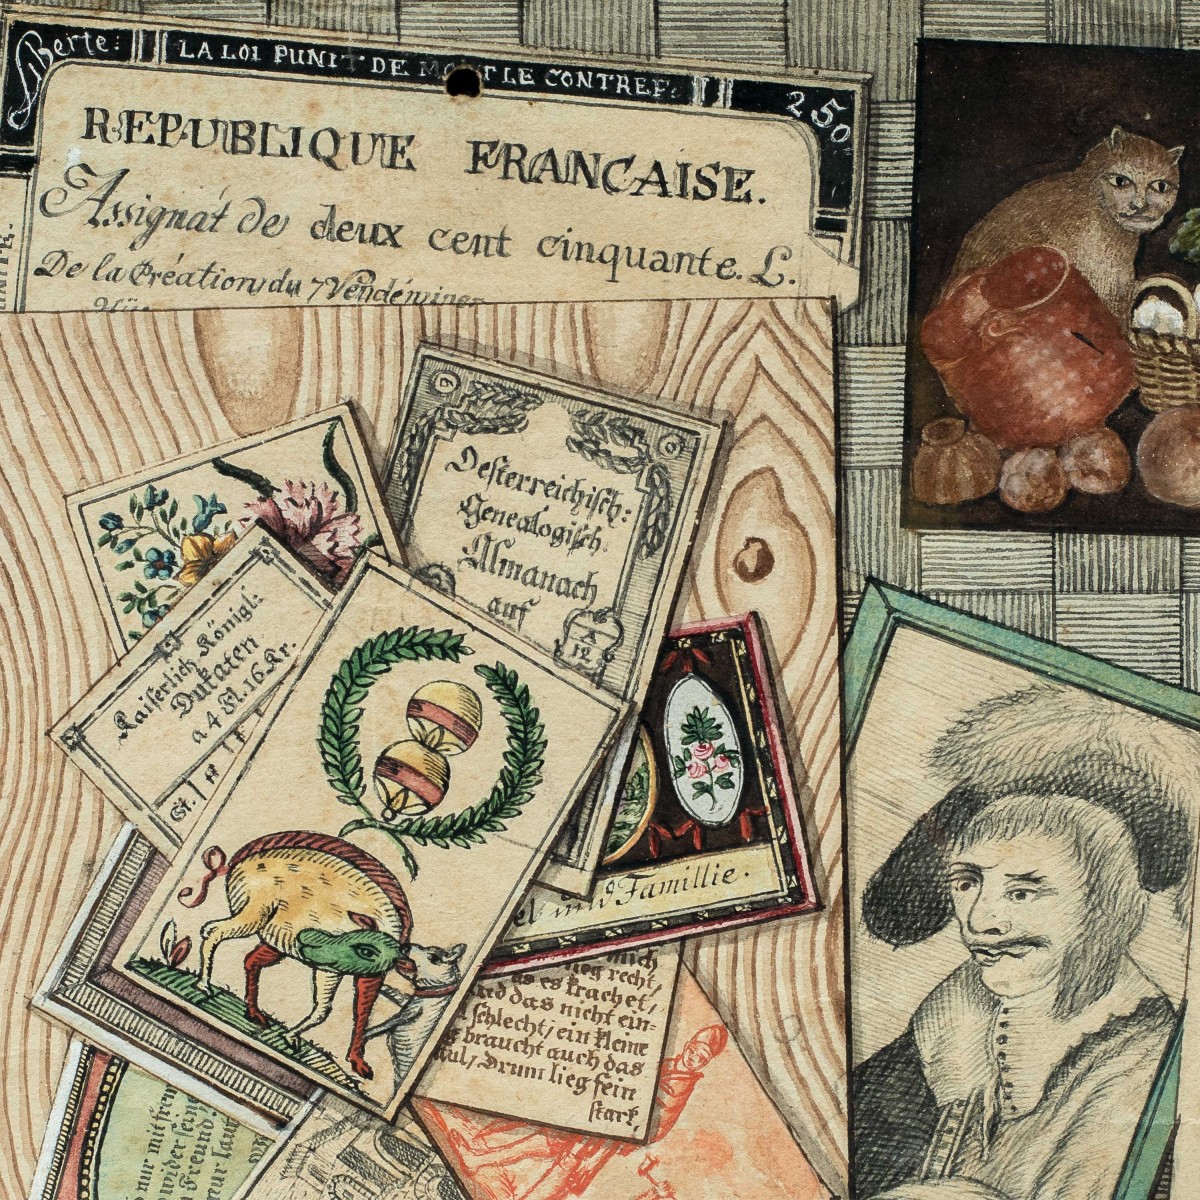 Liberte:
LA LOI PUNIT DE MORT LE CONTREF:
250
REPUBLIQUE FRANCAISE.
Assignát de deux cent cinquante. L.
De la Création du 7 Vendémiaer
Oesterreichisch:
Genealogisch.
Almanach
auf
A
12
Kaiserlich Königl:
Dukaten
a 4 Fl. 16 Kr.
St. 1 #
und Famillie.
mich
recht,
as es krachet,
und das nicht ein=
schlecht, ein kleine
braucht auch das
Drum lieg fein
stark.
nur mit
wider sein
Freund
nur